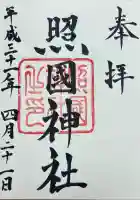 奉拝
照國神社
平成三十一年四月二十一日